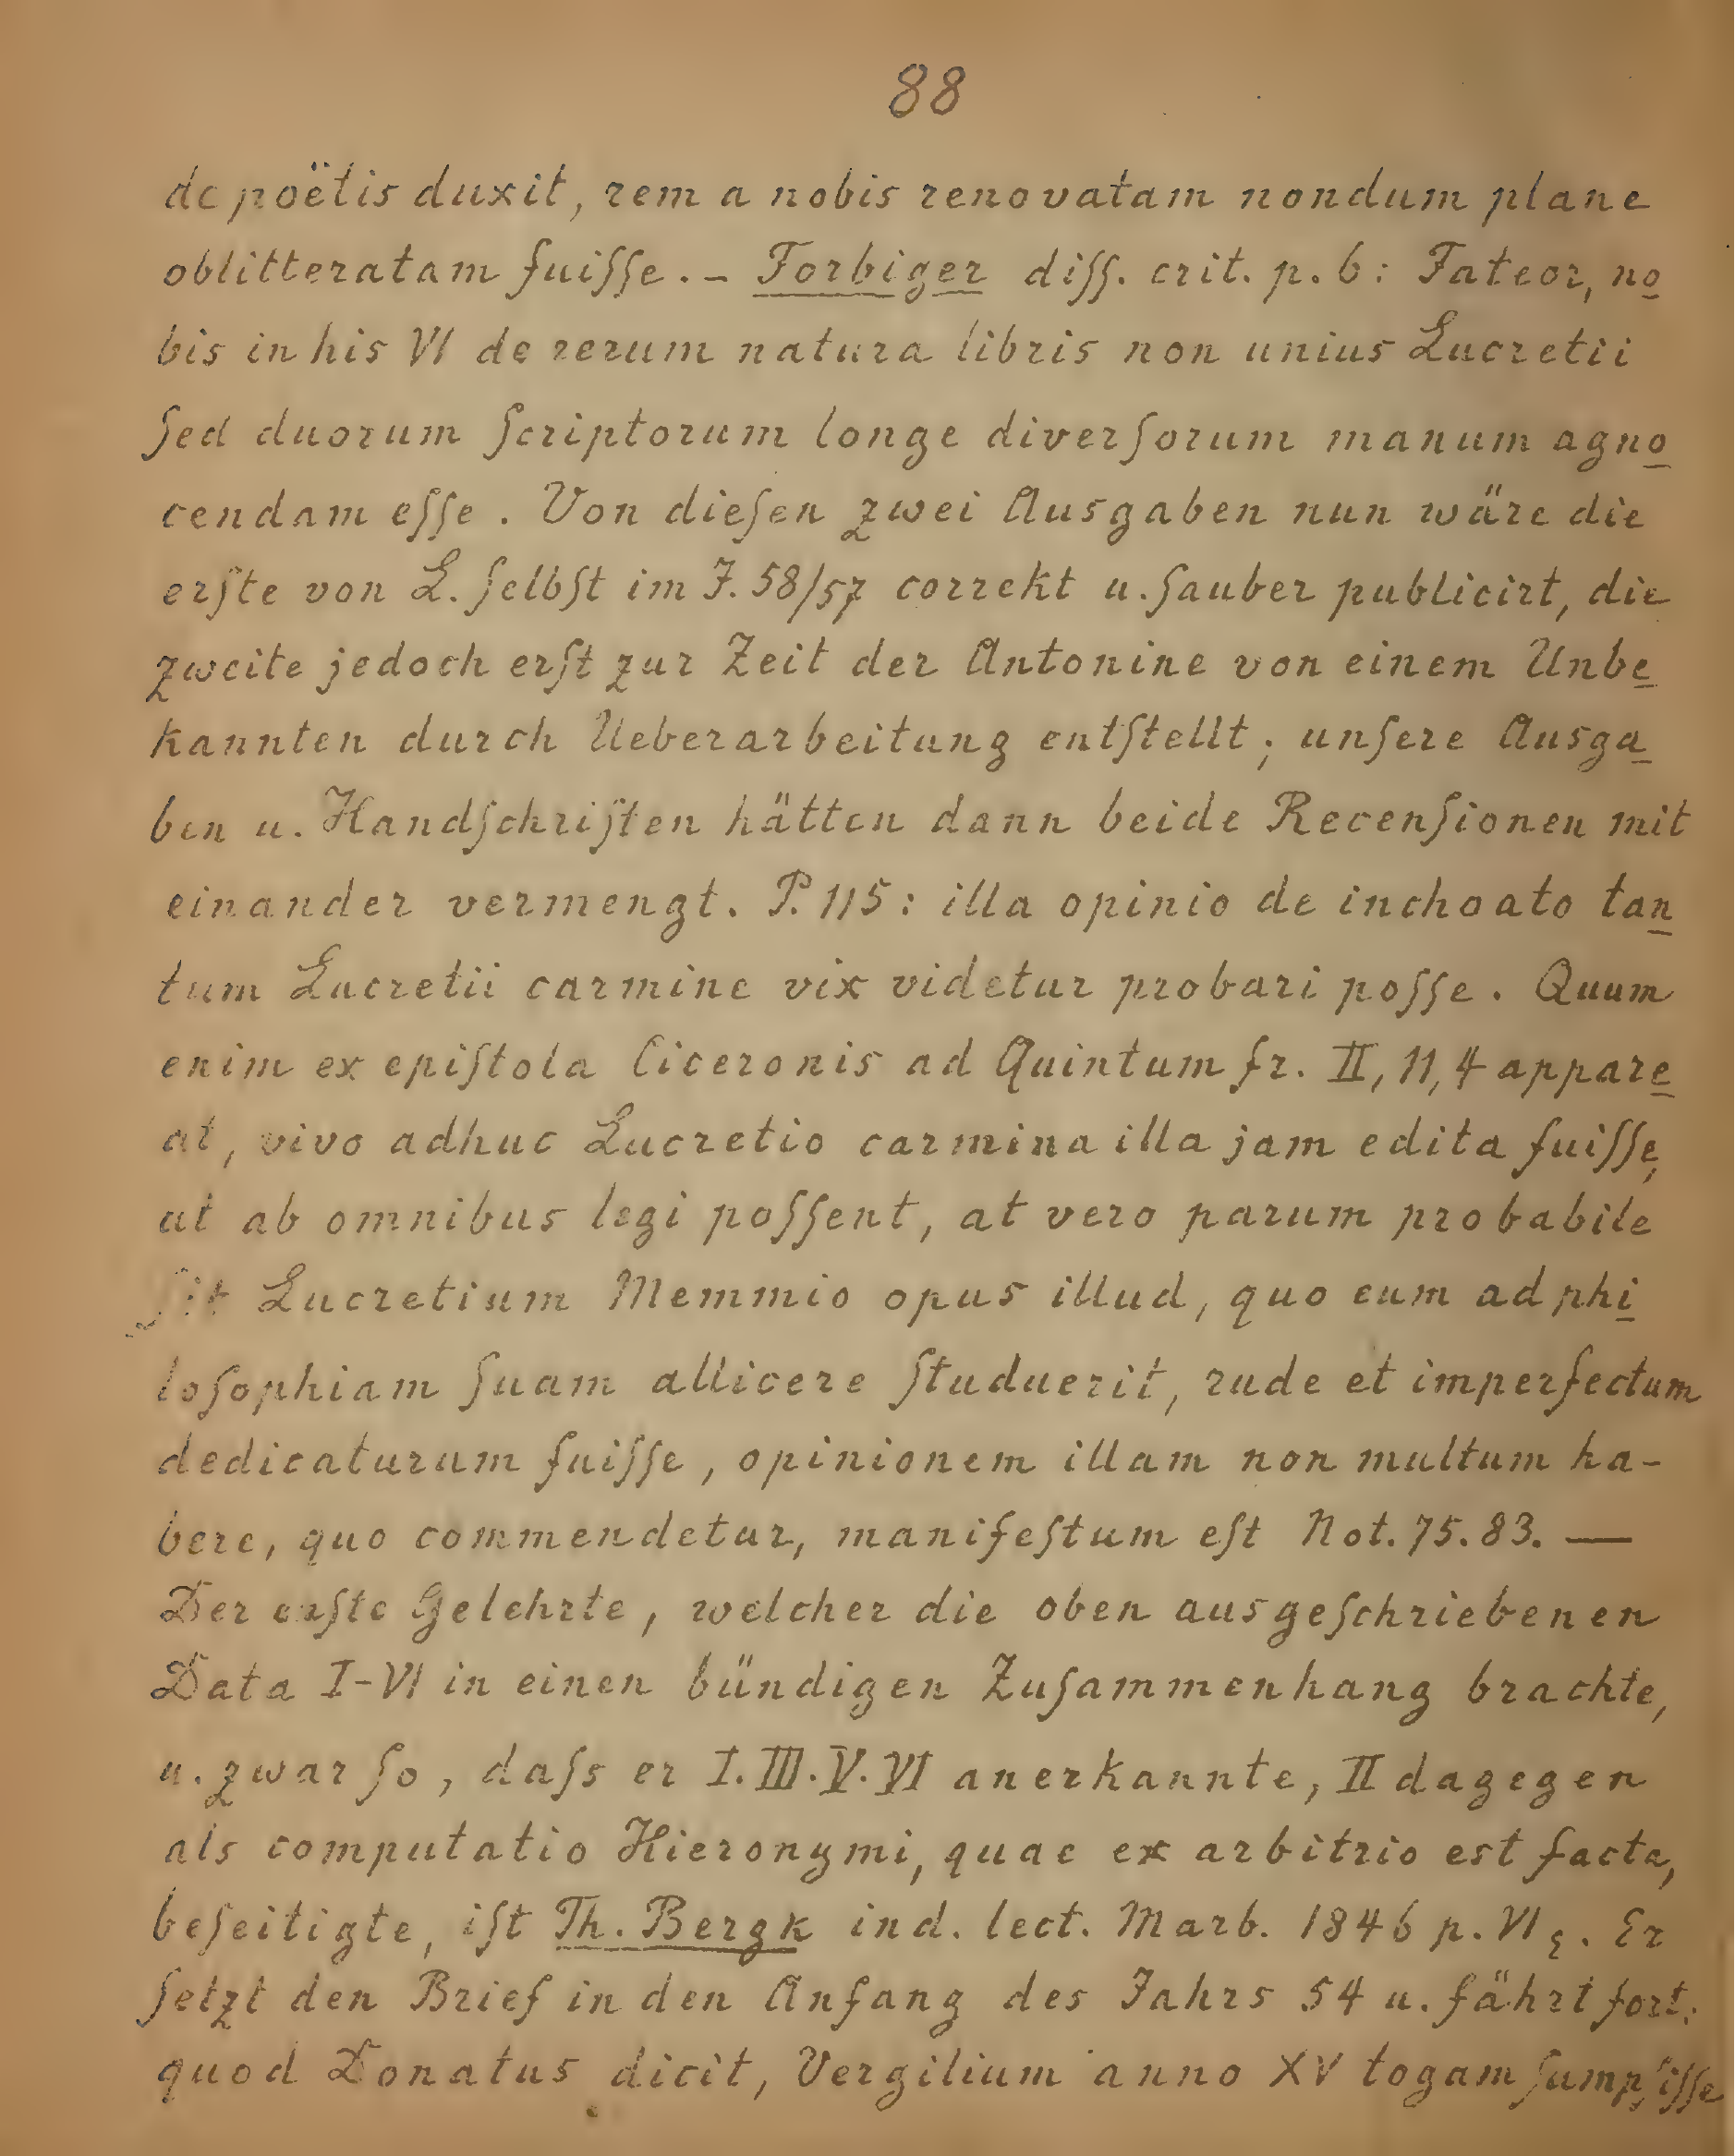 88
de poëtis duxit, rem a nobis renovatam nondum plane
oblitteratam fuiſſe. – Forbiger diſſ. crit. p. 6: Fateor, no
bis in his VI de rerum natura libris non unius Lucretii
ſed duorum ſcriptorum longe diverſorum manum agno
cendam eſſe. Von dieſen zwei Ausgaben nun wäre die
erſte von L. ſelbſt im J. 58/57 correkt u. ſauber publicirt, die
zweite jedoch erſt zur Zeit der Antonine von einem Unbe
kannten durch Ueberarbeitung entſtellt; unſere Ausga
ben u. Handſchriften hätten dann beide Recenſionen mit
einander vermengt. P. 115: illa opinio de inchoato tan
tum Lucretii carmine vix videtur probari poſſe. Quum
enim ex epiſtola Ciceronis ad Quintum fr. II, 11, 4 appare
at, vivo adhuc Lucretio carmina illa jam edita fuiſſe,
ut ab omnibus legi poſſent, at vero parum probabile
ſit Lucretium Memmio opus illud, quo eum ad phi
loſophiam ſuam allicere ſtuduerit, rude et imperfectum
dedicaturum fuiſſe, opinionem illam non multum ha-
bere, quo commendetur, manifeſtum eſt Not. 75. 83. —
Der erſte Gelehrte, welcher die oben ausgeſchriebenen
Data I-VI in einen bündigen Zuſammenhang brachte,
u. zwar ſo, daſs er I. III. V. VI anerkannte, II dagegen
als computatio Hieronymi, quae ex arbitrio est facta,
beſeitigte, iſt Th. Bergk ind. lect. Marb. 1846 p. VI . Er
ſetzt den Brief in den Anfang des Jahrs 54 u. fährt fort:
quod Donatus dicit, Vergilium anno XV togam ſumpſiſſe